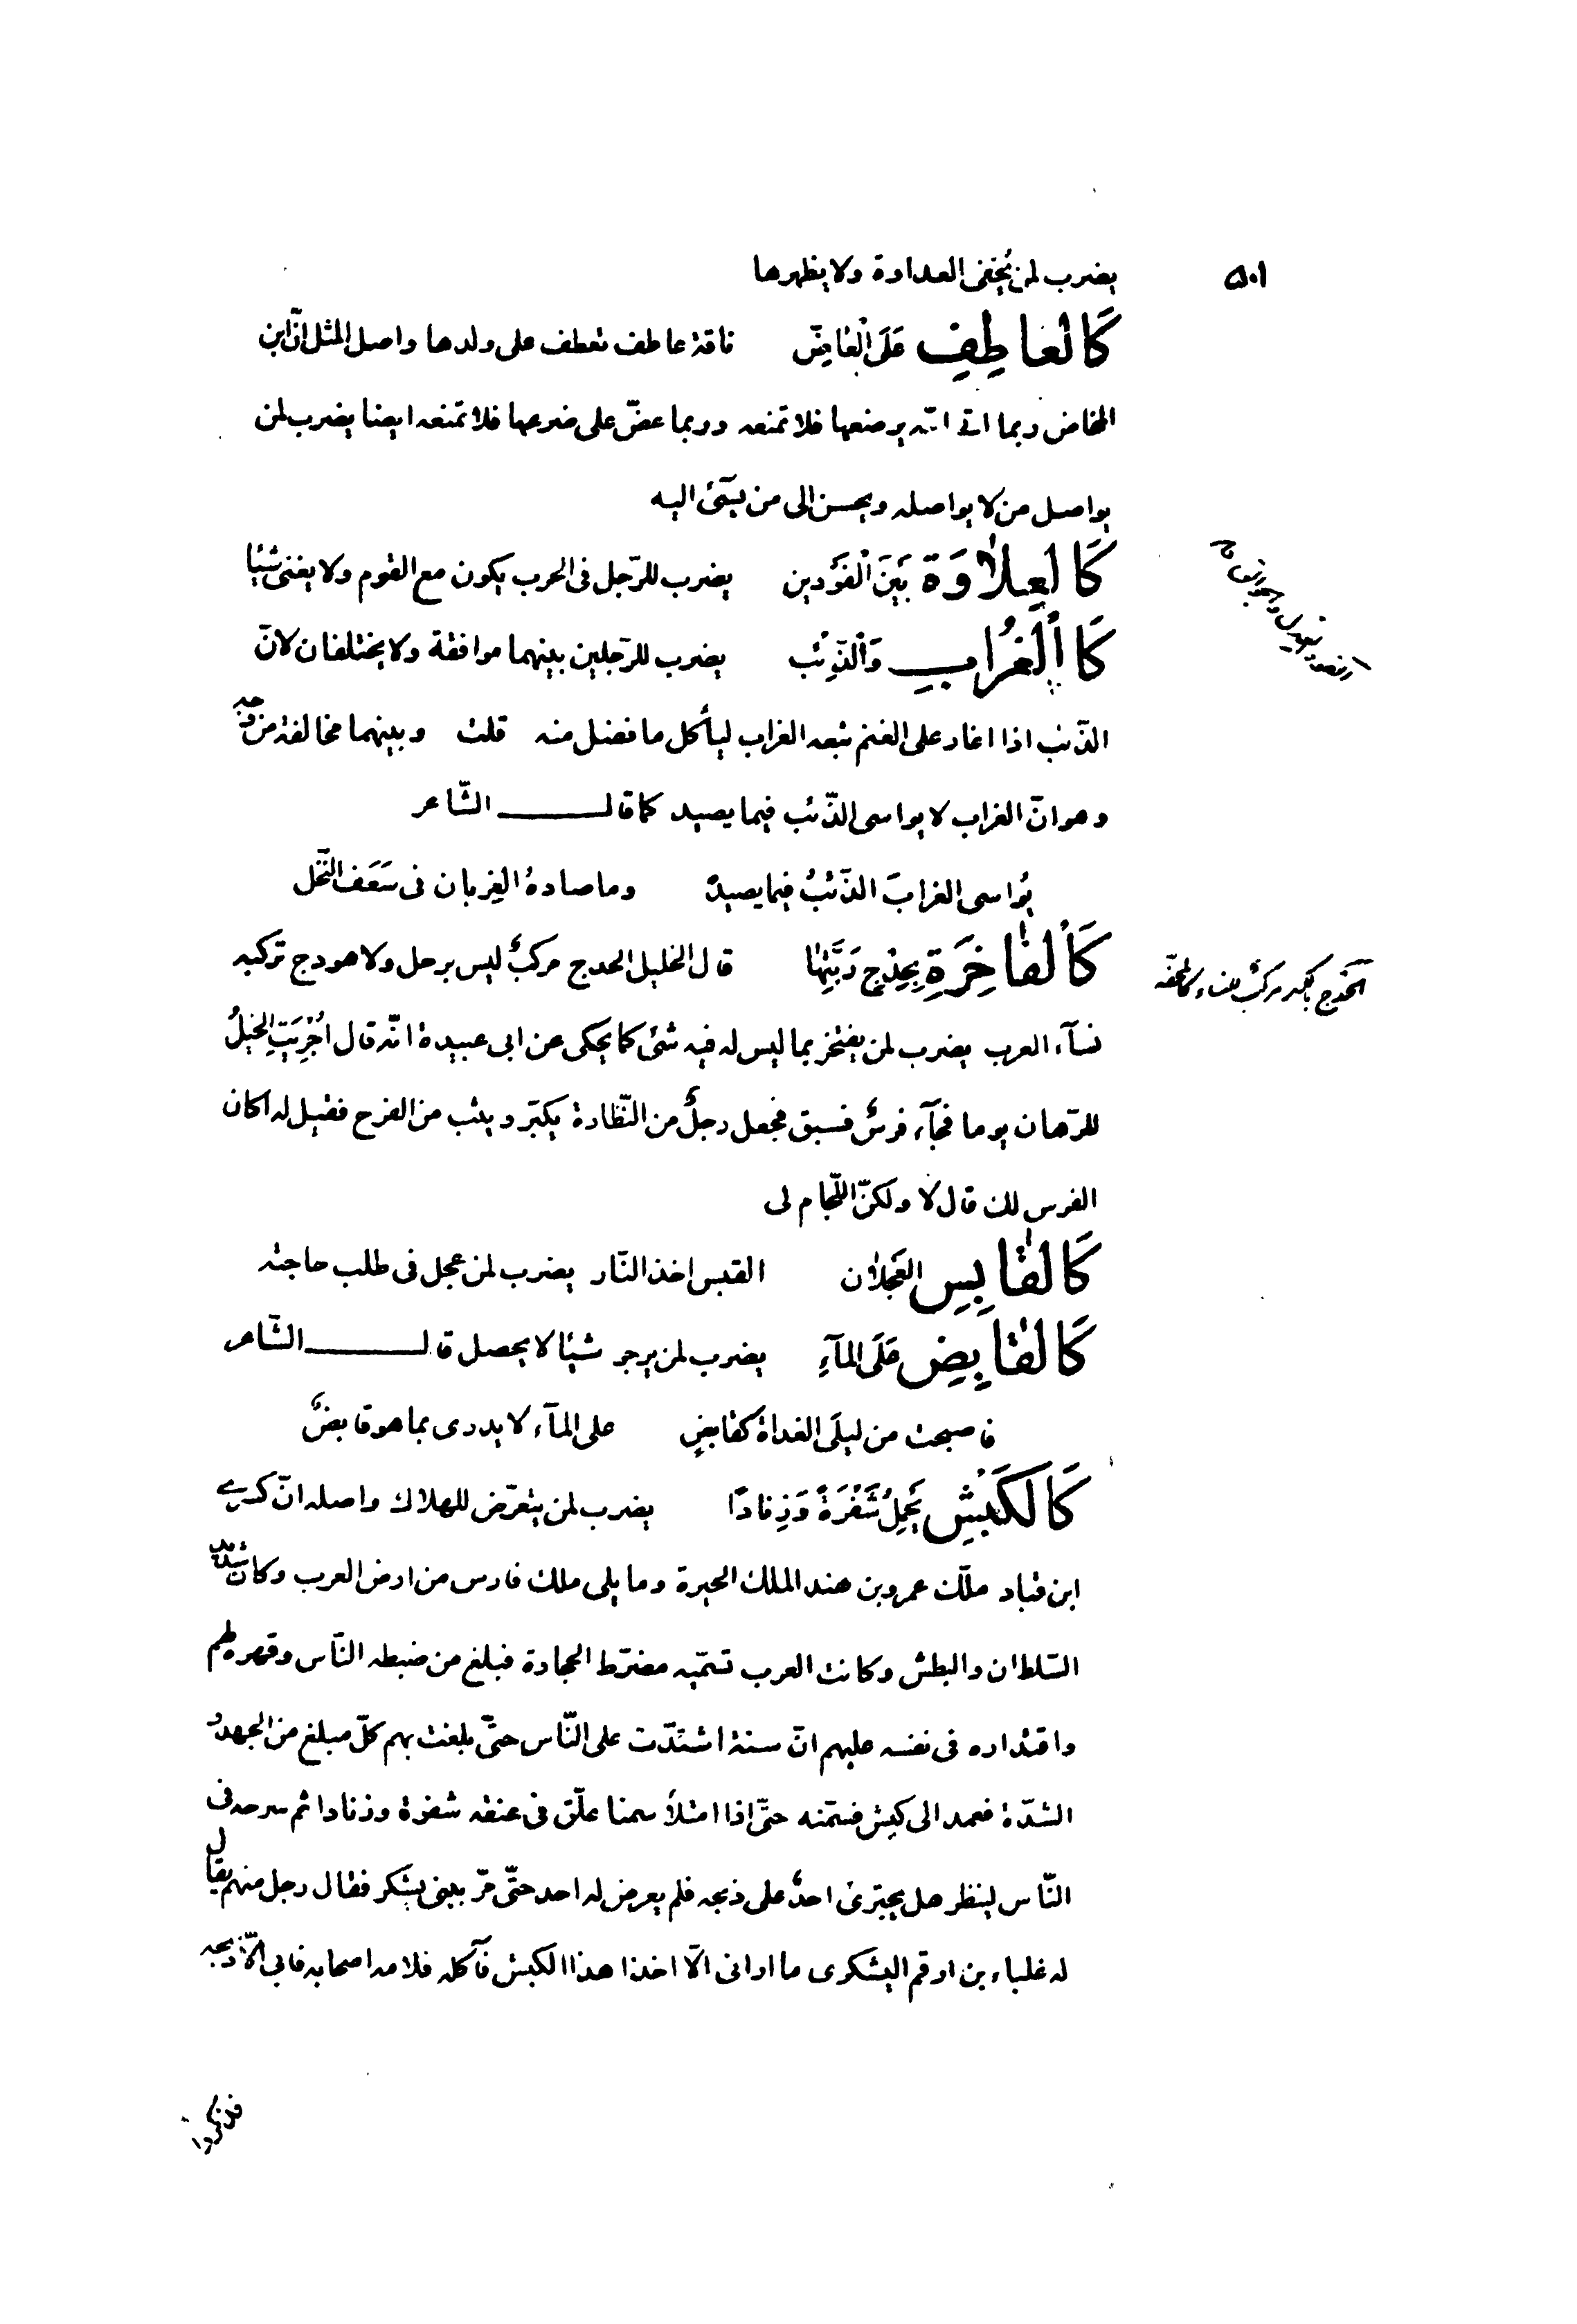 ٥٠١
يضرب لمن يُخفى العداوة ولا يظهرها
كَالعاطِفِ عَلَى الْعاضّ ناقة عاطف تعطف على ولدها واصل المثل انّ ابن
المخاض ربما اتى امّه يرضعها فلا تمنعه وربما عضّ على ضرعها فلا تمنعه ايضا يضرب لمن
يواصل من لا يواصله ويحسن الى من يسٓئ اليه
كَالعِلاوَة بَيَن الْفَوْدين يضرب للرّجل فى الحرب يكون مع القوم ولا يغنى شيئا
كَاَلْغُرٰابِ وَالْذِّئب يضرب للرّجلين بينهما موافقة ولا يختلفان لانّ
الذّئب اذا اغار على الغنم تبعه الغراب ليأكل ما فضل منه قلت وبينهما مخالفة من وجه
وهو انّ الغراب لا يواسى الذّئب فيما يصيد كما قال الشّاعر
يُواسى الغرابَ الذّئبُ فيما يصيدُ وما صادهُ الغِربان فى سَعَف النّخل
كَالْفٰاخِرَةِ بِحِدْجِ رَبَّتِهٰا قال الخليل الحدج مركبٌ ليس برحل ولا هودج تركبه
الحدج بالكسر مركب للنساء كالمحفّه
نسآء العرب يضرب لمن يفتخر بما ليس له فيه شئ كما يحكى عن ابى عبيدة انّه قال اُجْرِيَتِ الخيلُ
للرّهان يوما فجآء فرسٌ فسبق فجعل رجلٌ من النّظارة يكبّر ويثب من الفرح فقيل له اكان
الفرس لك قال لا ولكنّ اللّجام لى
كَالقٰابِسِ العَجْلان القبس اخذ النّار يضرب لمن عجل فى طلب حاجته
كَالقٰابِضِ عَلَى المآءِ يضرب لمن يرجو شيئا لا يحصل قال الشّاعر
فاصبحت من ليلَى الغداة كقابضٍ على المآء لا يدرى بما هو قابضٌ
كَالكَبْشِ يَحْمِلُ شَفْرَةً وَزِنادًا يضرب لمن يتعرّض للهلاك واصله انّ كسرى
ابن قباد ملّك عمرو بن هند الملك الحيرة وما يلى ملك فارس من ارض العرب وكان شديد
السّلطان والبطش وكانت العرب تسمّيه مضرّط الحجارة فبلغ من ضبطه النّاس وقهره لهم
واقتداره فى نفسه عليهم انّ سنة اشتدّت على النّاس حتّى بلغت بهم كلّ مبلغ من الجهد و
الشدّة فعمد الى كبش فسمّنه حتّى اذا امتلأ سمنا علّق فى عنقه شفرة وزنادا ثم سرحه فى
النّاس لينظر هل يجترئ احدٌ على ذبحه فلم يعرض له احد حتّى مرّ ببنى يشكر فقال رجل منهم يقال
له غلباء بن ارقم اليشكرى ما ارانى الّا اخذا هذا الكبش فآكله فلامه اصحابه فابى الّا ذبحه
فذكروا